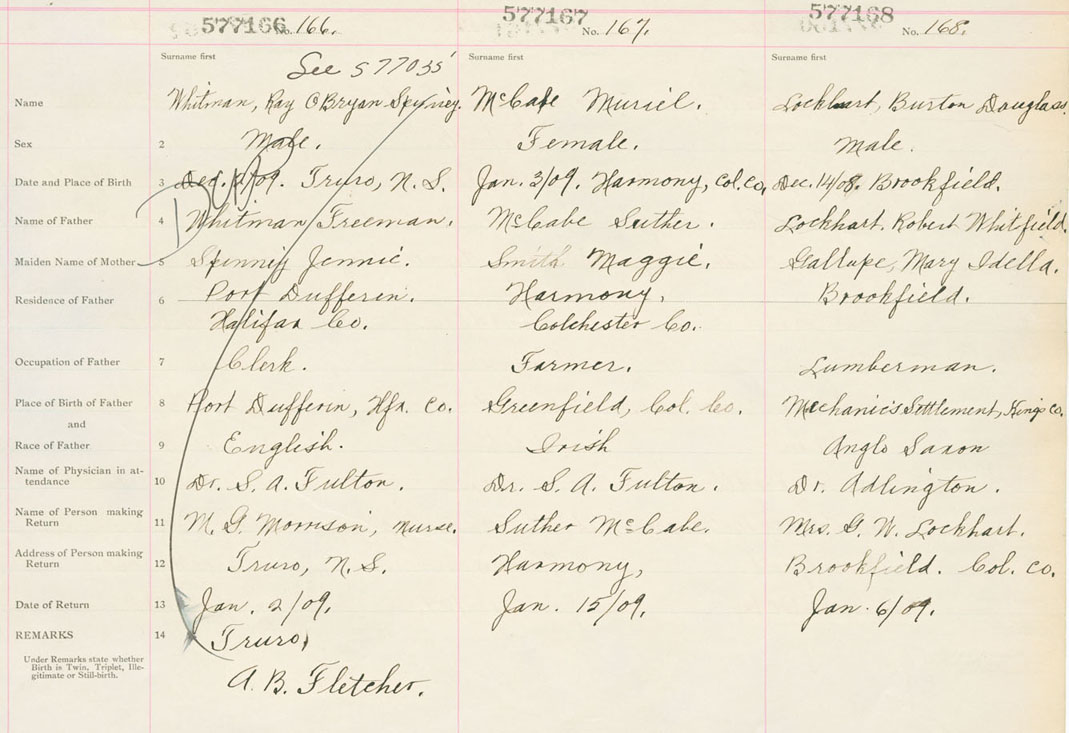 577166 No. 166. 577167 No. 167. 577168 No. 168.
Surname first Surname first Surname first
See 577035
Name Whitman, Ray O'Bryan Spinney. McCabe Muriel. Lockhart, Burton Douglass.
Sex 2 Male. Female. Male.
Date and Place of Birth 3 Dec. /09. Truro, N.S. Jan. 3/09. Harmony, Col. Co. Dec. 14/08. Brookfield.
Dup
Name of Father 4 Whitman Freeman. McCabe Suther. Lockhart. Robert Whitfield.
Maiden Name of Mother 5 Spinney Jennie. Smith Maggie. Gallupe, Mary Idella.
Residence of Father 6 Port Dufferin. Harmony, Brookfield.
Halifax Co. Colchester Co.
Occupation of Father 7 Clerk. Farmer. Lumberman.
Place of Birth of Father 8 Port Dufferin, Hfx. Co. Greenfield, Col. Co. Mechanic's Settlement, Kings Co.
and
Race of Father 9 English. Irish Anglo Saxon
Name of Physician in at-
tendance 10 Dr. S. A. Fulton. Dr. S. A. Fulton. Dr. Adlington.
Name of Person making
Return 11 M. G. Morrison, nurse. Suther McCabe. Mrs. G. W. Lockhart.
Address of Person making
Return 12 Truro, N.S. Harmony, Brookfield. Col. Co.
Date of Return 13 Jan. 2/09. Jan. 15/09. Jan. 6/09.
REMARKS 14 Truro,
Under Remarks state whether
Birth is Twin, Triplet, Ille-
gitimate or Still-birth.
A. B. Fletcher.